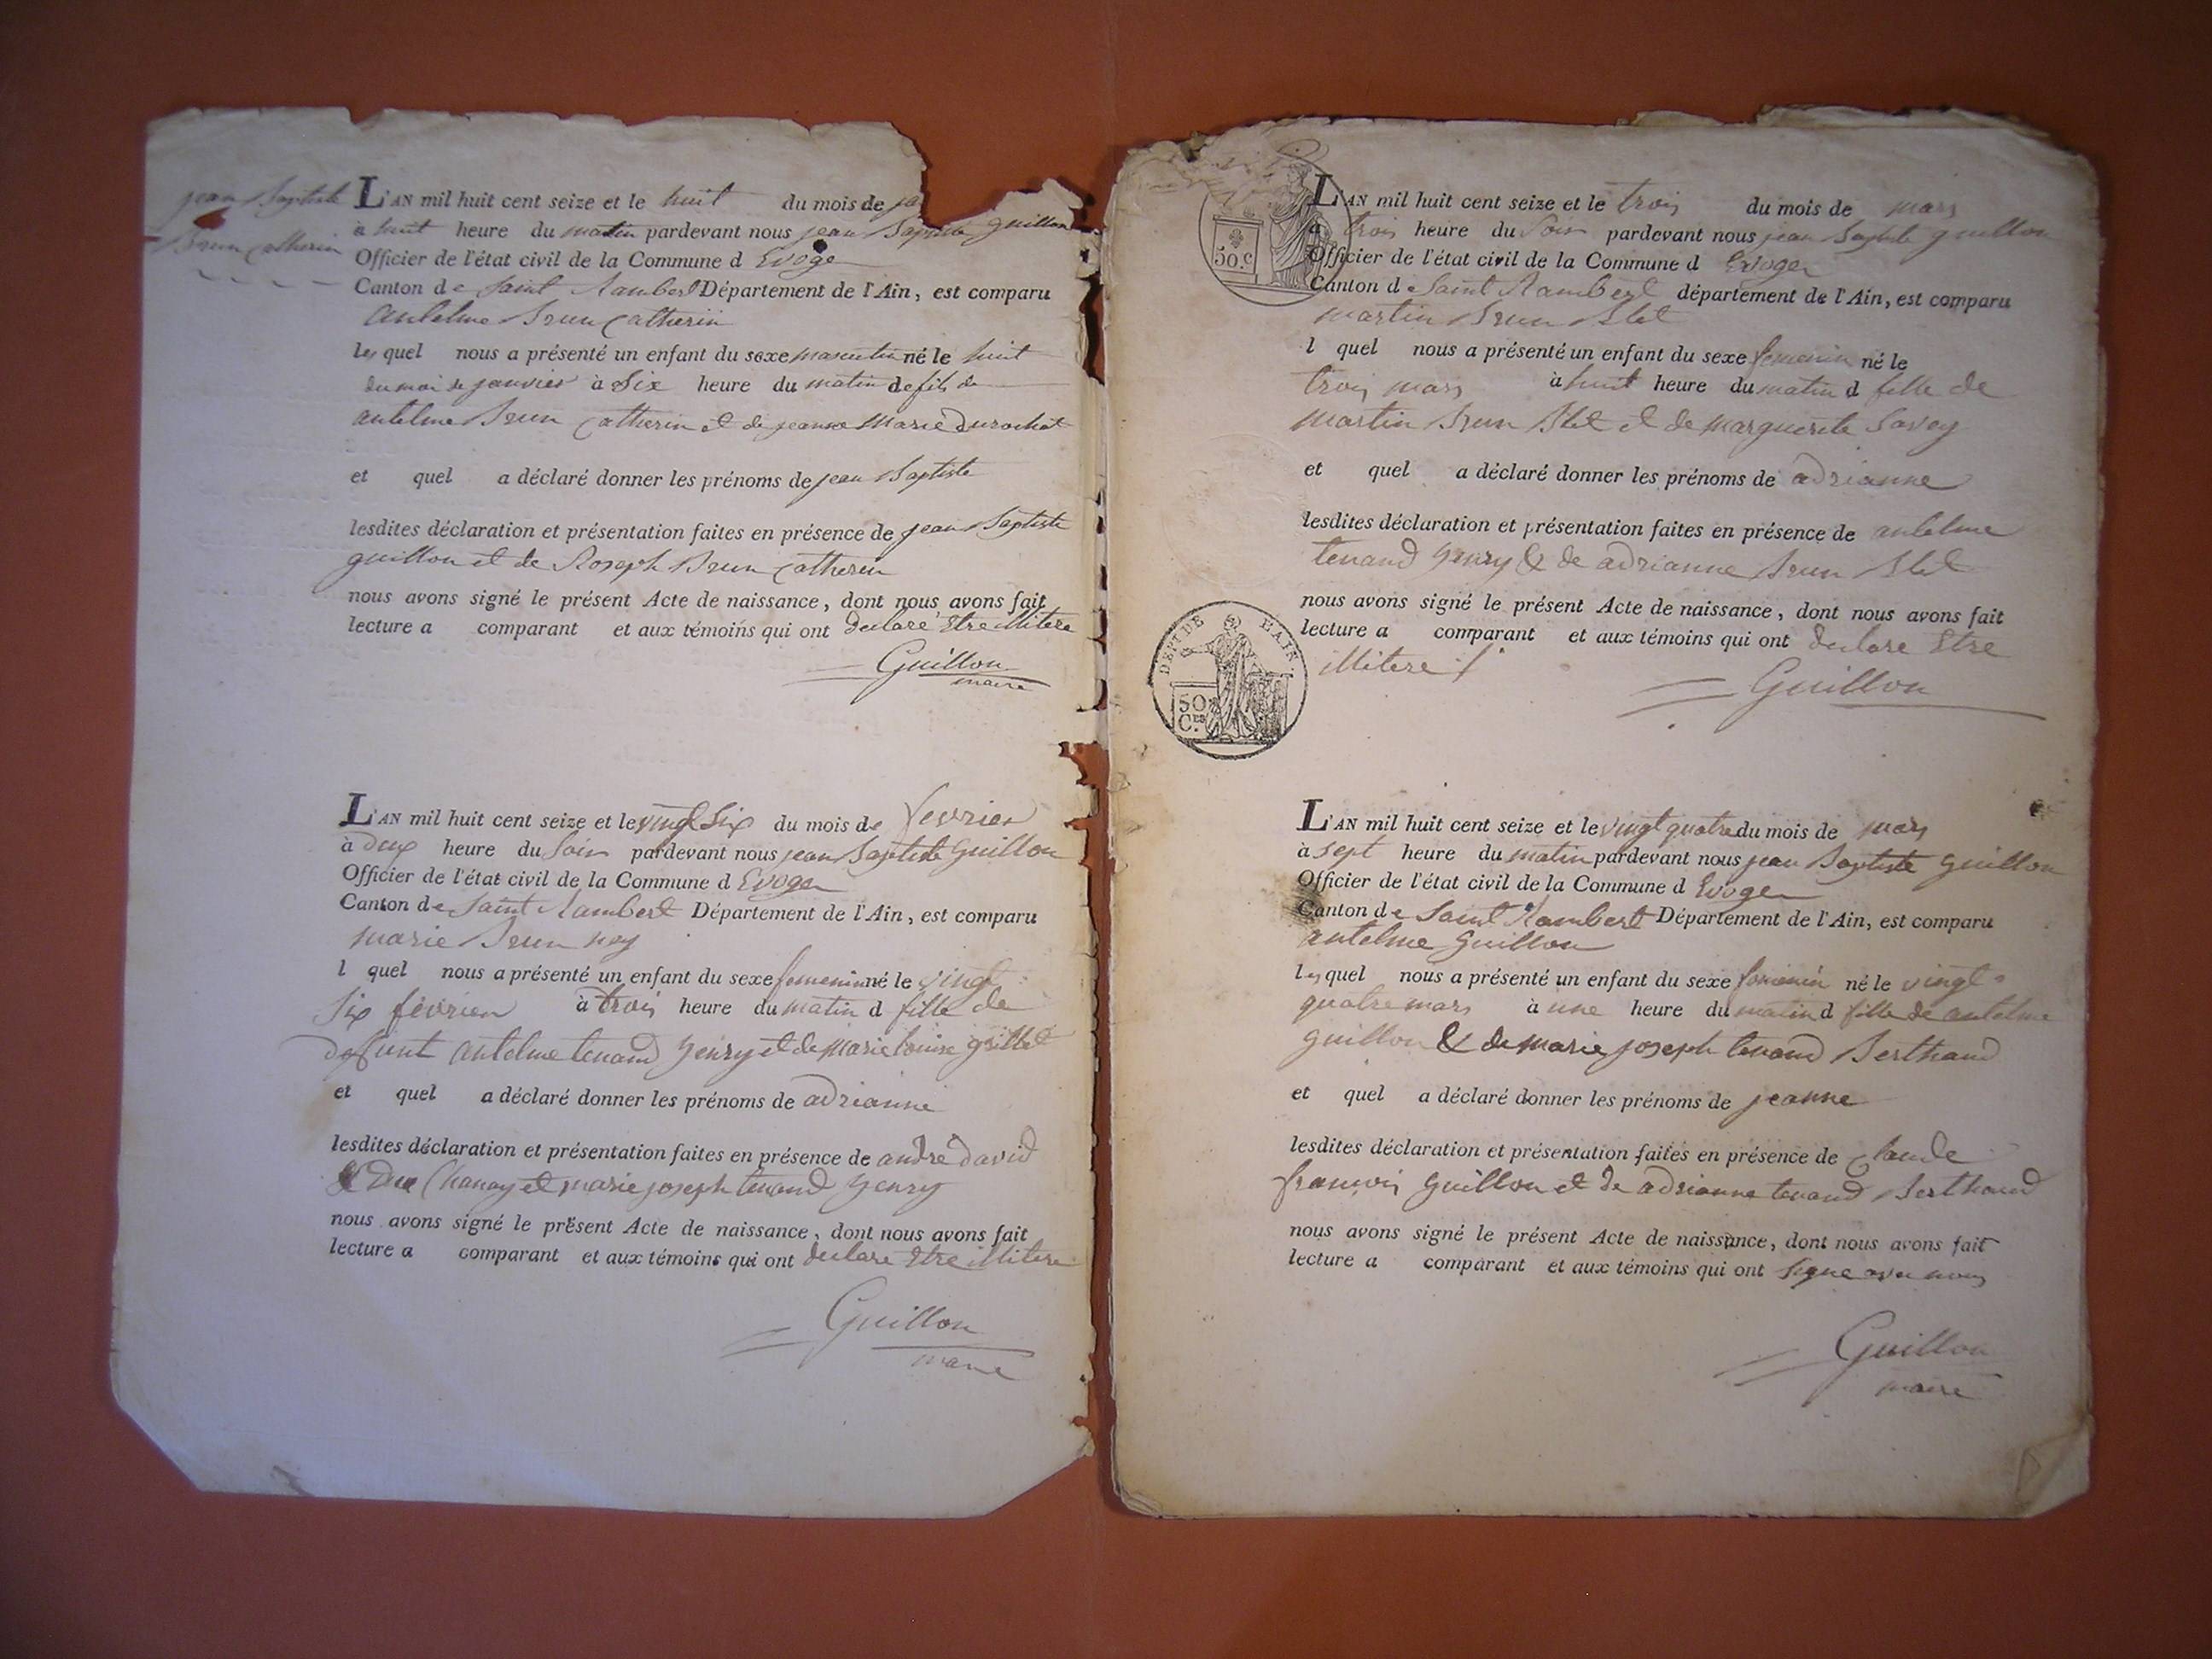 jean Baptiste
Brun Catherin
L'AN mil huit cent seize et le huit du mois de ja
à huit heure du matin pardevant nous jean Baptiste guillon
Officier de l'état civil de la Commune d Evoges
Canton de Saint Rambert Département de l'Ain, est comparu
Antelme Brun Catherin
lequel nous a présenté un enfant du sexe masculin né le huit
du moi de janvier à Six heure du matin de fils de
antelme Brun Catherin et de jeanne Marie Durochat
et quel a déclaré donner les prénoms de jean Baptiste
lesdites déclaration et présentation faites en présence de jean Baptiste
guillon et de Joseph Brun Catherin
nous avons signé le présent Acte de naissance, dont nous avons fait
lecture a comparant et aux témoins qui ont declaré Etre illitere
Guillon
maire
L'AN mil huit cent seize et le vingt Six du mois de fevrier
à deux heure du Soir pardevant nous jean Baptiste Guillon
Officier de l'état civil de la Commune d Evoges
Canton de Saint Rambert Département de l'Ain, est comparu
marie Brun ney
l quel nous a présenté un enfant du sexe femeninné le vingt
Six février à trois heure du matin d fille de
defunt antelme tenand henry et de Marie louise grillet
et quel a déclaré donner les prénoms de adrianne
lesdites déclaration et présentation faites en présence de andré david
Chanay et marie joseph tenand henry
nous avons signé le présent Acte de naissance, dont nous avons fait
lecture a comparant et aux témoins qui ont declare Etre illitere
Guillon
maire
50.c
L'AN mil huit cent seize et le trois du mois de mars
à trois heure du Soir pardevant nous jean Baptiste guillon
Officier de l'état civil de la Commune d Evoges
Canton de Saint Rambert département de l'Ain, est comparu
martin Brun Blet
l quel nous a présenté un enfant du sexe femenin né le
trois mars à huit heure du matin d fille de
martin Brun Blet et de marguerite Savey
et quel a déclaré donner les prénoms de adrianne
lesdites déclaration et présentation faites en présence de antelme
tenand henry & de adrianne Brun Blet
nous avons signé le présent Acte de naissance, dont nous avons fait
lecture a comparant et aux témoins qui ont declare Etre
illitere
Guillon
DEP.T DE L'AIN
50
C.ES
L'AN mil huit cent seize et le vingt quatre du mois de mars
à sept heure du matin pardevant nous jean Baptiste guillon
Officier de l'état civil de la Commune d Evoges
Canton de Saint Rambert Département de l'Ain, est comparu
antelme Guillon
lequel nous a présenté un enfant du sexe femenin né le vingt
quatre mars à une heure du matin d fille de antelme
guillon & de marie joseph tenand Berthaud
et quel a déclaré donner les prénoms de jeanne
lesdites déclaration et présentation faites en présence de Claude
françois Guillon et de adrianne tenand Berthaud
nous avons signé le présent Acte de naissance, dont nous avons fait
lecture a comparant et aux témoins qui ont signe avec nous
Guillon
maire